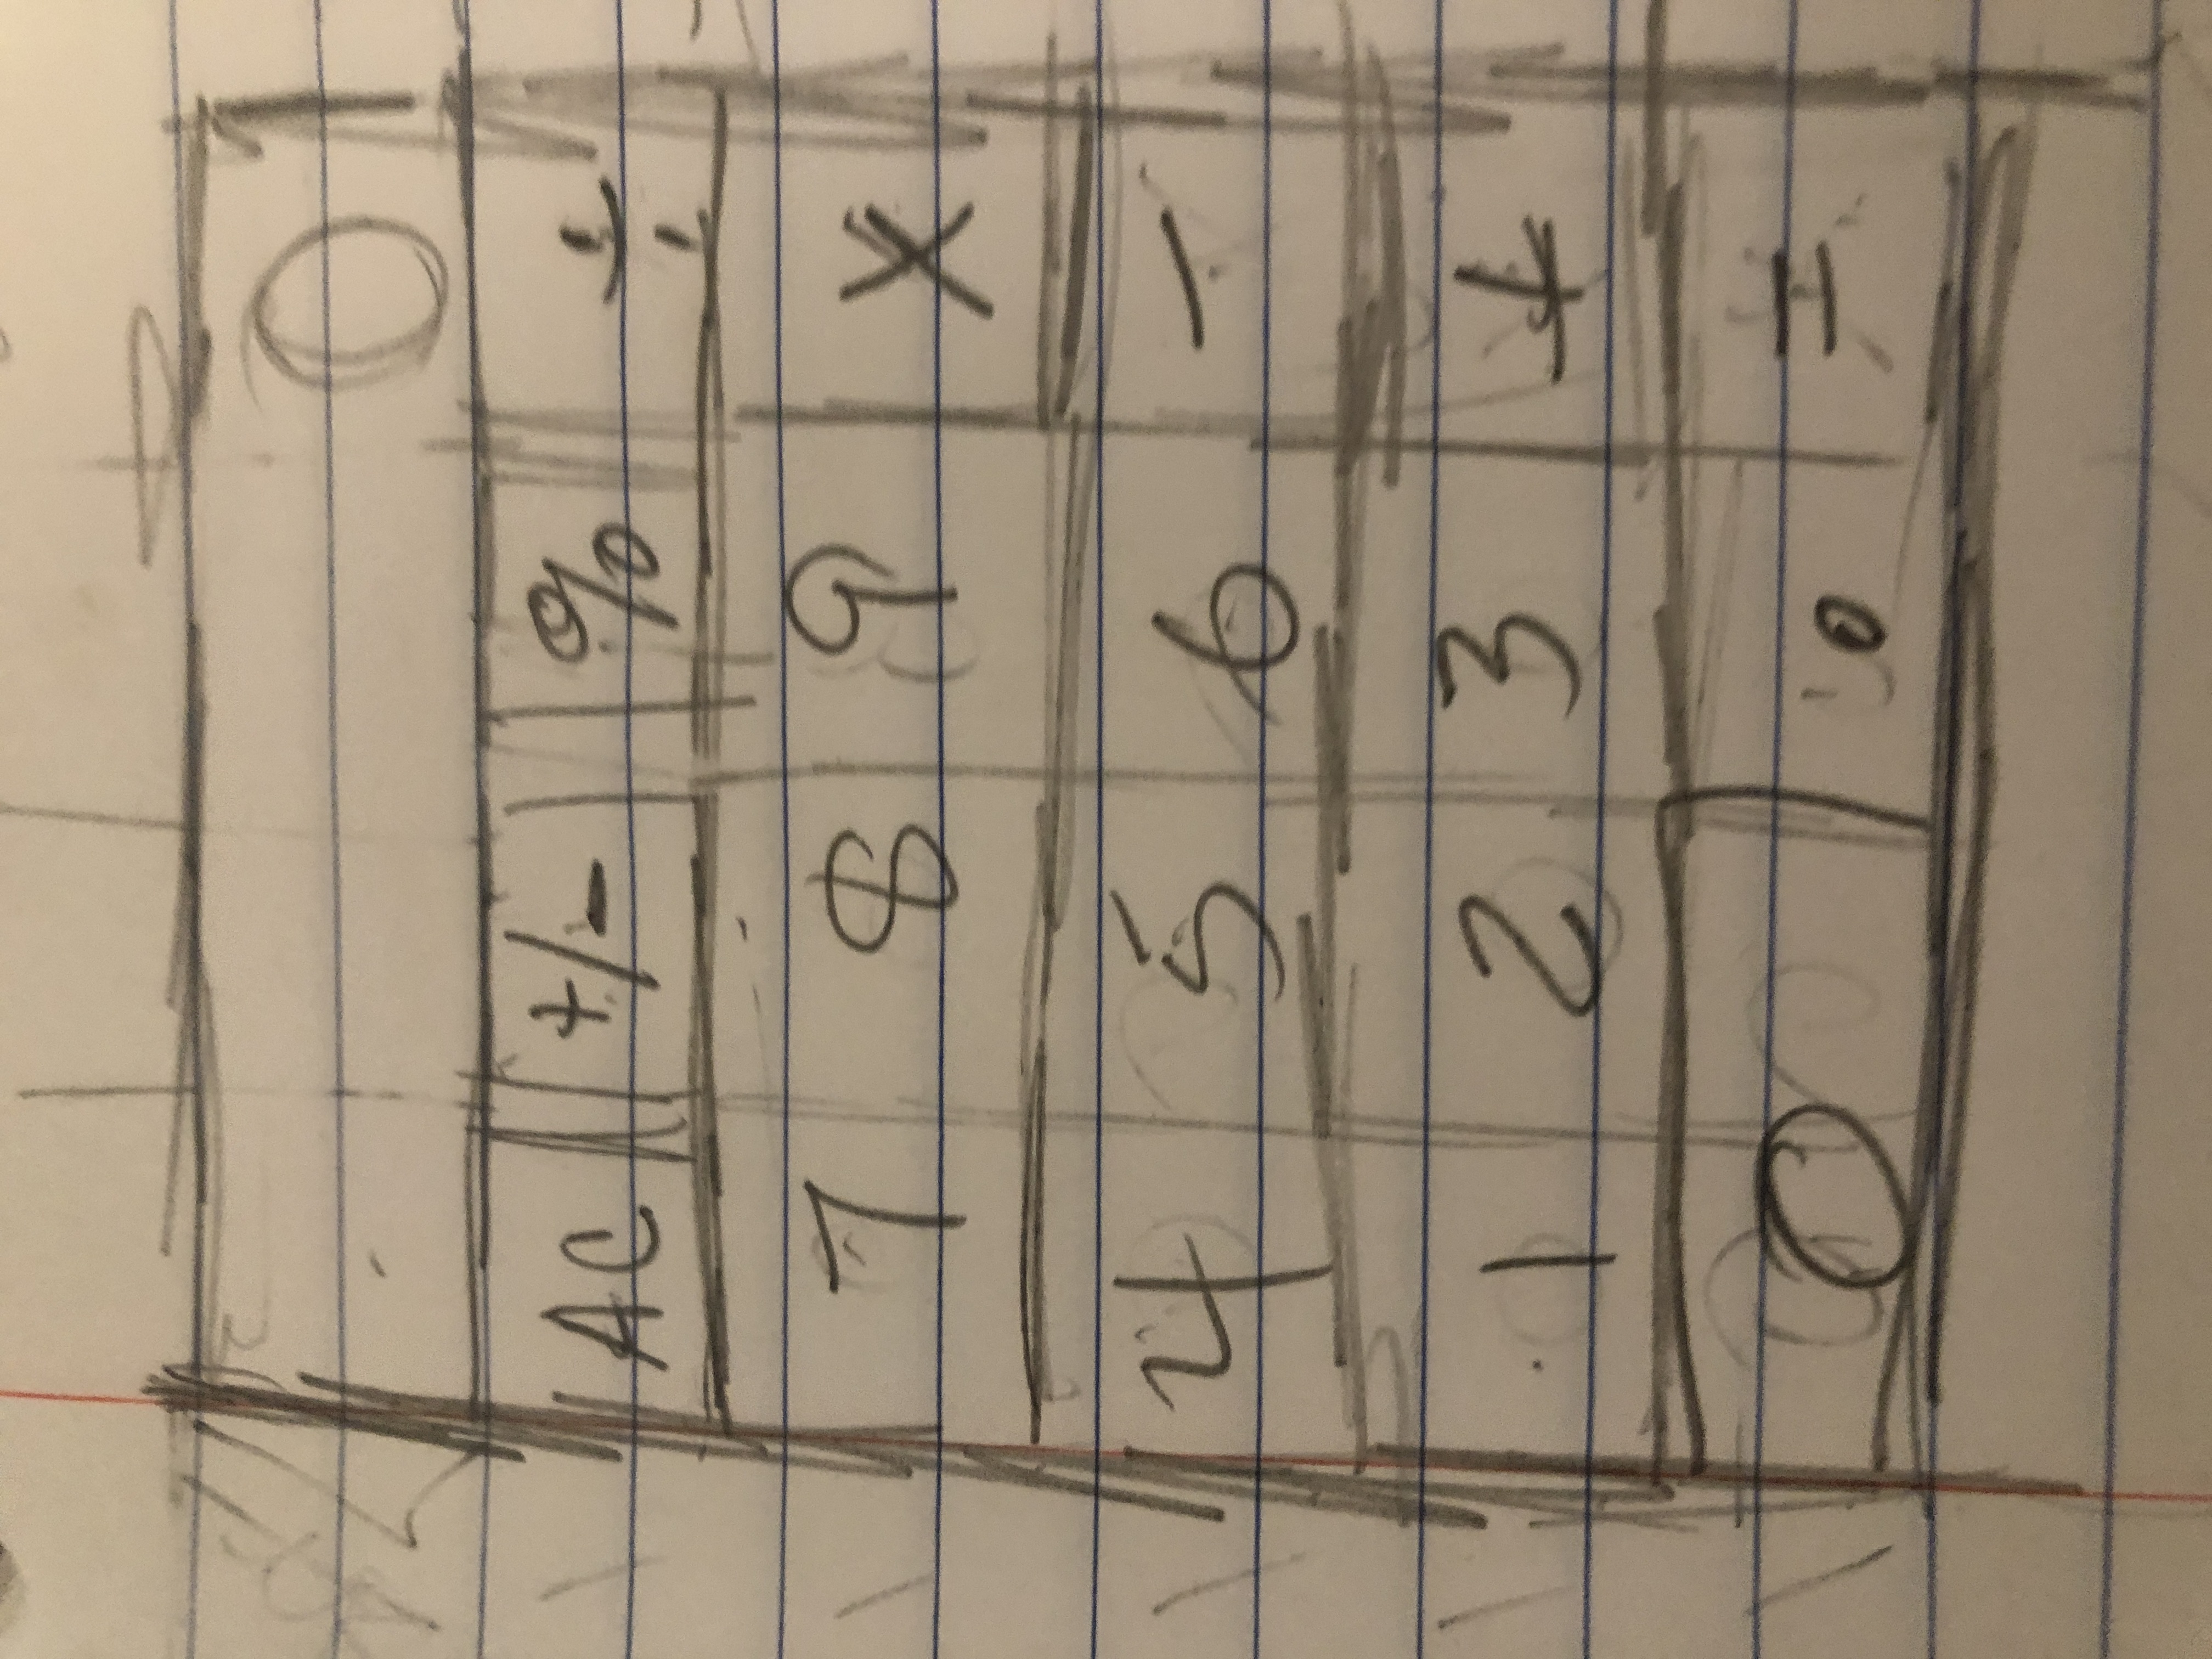 0
AC +/- % ÷
7 8 9 X
4 5 6 -
1 2 3 +
0 . =